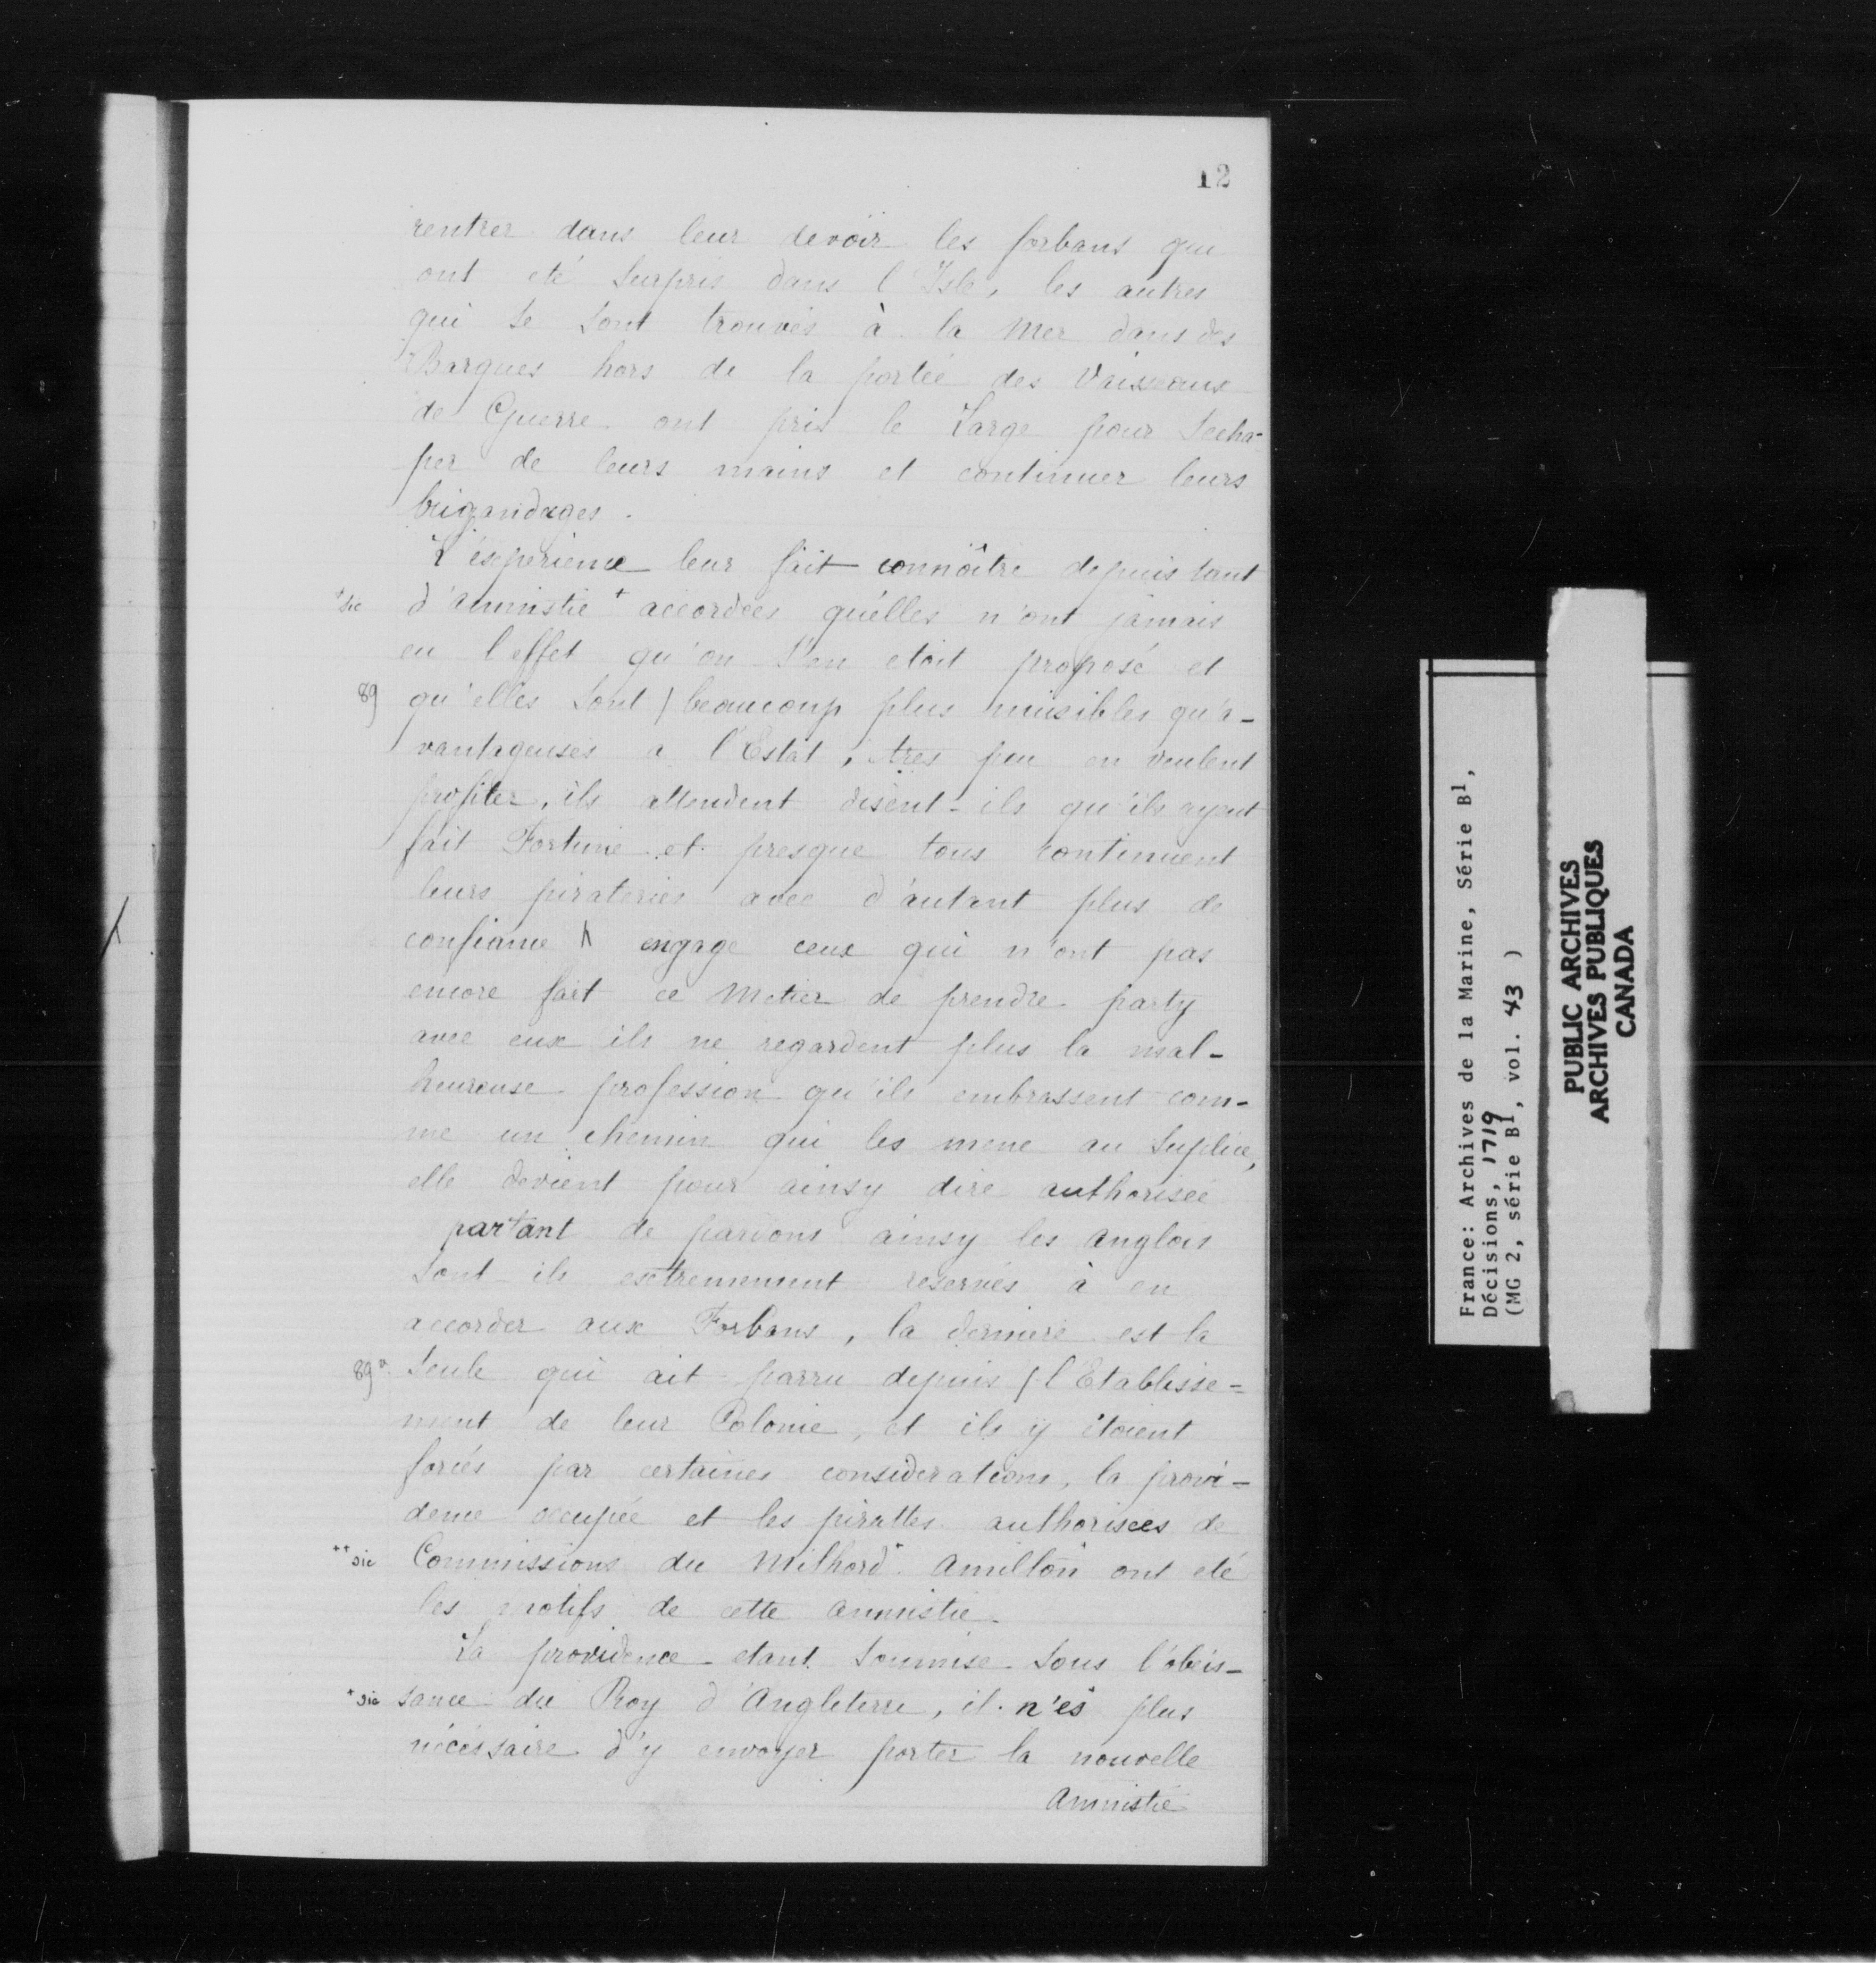 12
rentrer dans leur devoir les forbans qui
ont eté Surpris dans l'Isle, les autres
qui Se Sont trouvés à la Mer dans des
Barques hors de la portée des Vaisseaux
de Guerre ont pris le Large pour Secha-
per de leurs mains et continuer leurs
brigandages.
L'éxperience leur fait connoître depuis tant
+sic d'amnistie + accordées qu'elles n'ont jamais
eu l'effet qu'on S'en etoit proposé et
89 qu'elles Sont / beaucoup plus nuisibles qu'a-
vantageuses a l'Estat, tres peu en veulent
profiter, ils attendent disent-ils qu'ils ayent
fait Fortune et presque tous continuent
leurs pirateries avec d'autant plus de
confiance engage ceux qui n'ont pas
encore fait ce Metier de prendre party
avec eux ils ne regardent plus la mal-
heureuse profession qu'ils embrassent com-
me un chemin qui les mene au Suplice,
elle devient pour ainsy dire authorisée
partant de pardons ainsy les anglois
Sont ils extremement reservés à en
accorder aux Forbans, la derniere est la
89v. Seule qui ait parru depuis / l'Etablisse=
ment de leur Colonie, et ils y étoient
forcés par certaines considerations, la provi=
dence occupée et les pirattes authorisées de
++sic Commissions du Milhord+ Amilton+ ont eté
les motifs de cette amnistie.
La providence etant Soumise Sous l'obeis-
+sic sance du Roy d'Angleterre, il n'es+ plus
nécéssaire d'y envoyer porter la nouvelle
Amnistie
France: Archives de la Marine, Série B1,
Décisions, 1719
(MG 2, série B1, vol. 43 )
PUBLIC ARCHIVES
ARCHIVES PUBLIQUES
CANADA